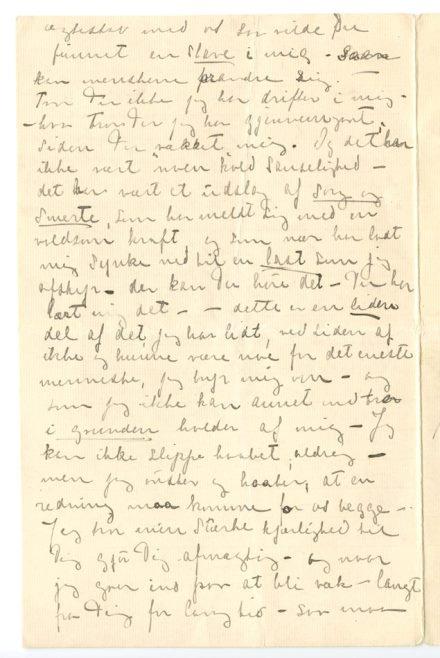 ægteskab med os saa vilde Du
funnet en slave i mig - Saan
kan menskene forandre sig. -
Tror Du ikke jeg har drifter i mig -
- hva Tror Du jeg har gjennemgaat,
siden Du vakket mig. Og det har
ikke vært "noen kold Sanselighed -
det har vært et udslag af Sorg og
Smerte, som har meldt sig med en
voldsom kraft, og som nær har ladt
mig synke ned til en last som jeg
afskyr - der kan Du høre det - Du har
lært mig det - - dette er en liden
del af det jeg har lidt, ved siden af
ikke og kunne være noe for det eneste
menneske, jeg bryr mig om - og
som jeg ikke kan annet end tro
i grunden holder af mig - Jeg
kan ikke slippe haabet, aldrig -
men jeg ønsker og haaber, at en
redning maa komme for os begge -
Jeg tror min stærke kjærlighed til
Dig gjør Dig afmægtig - og naar
jeg gaar ind paa at bli væk - langt
fra Dig for lang tid - saa maa